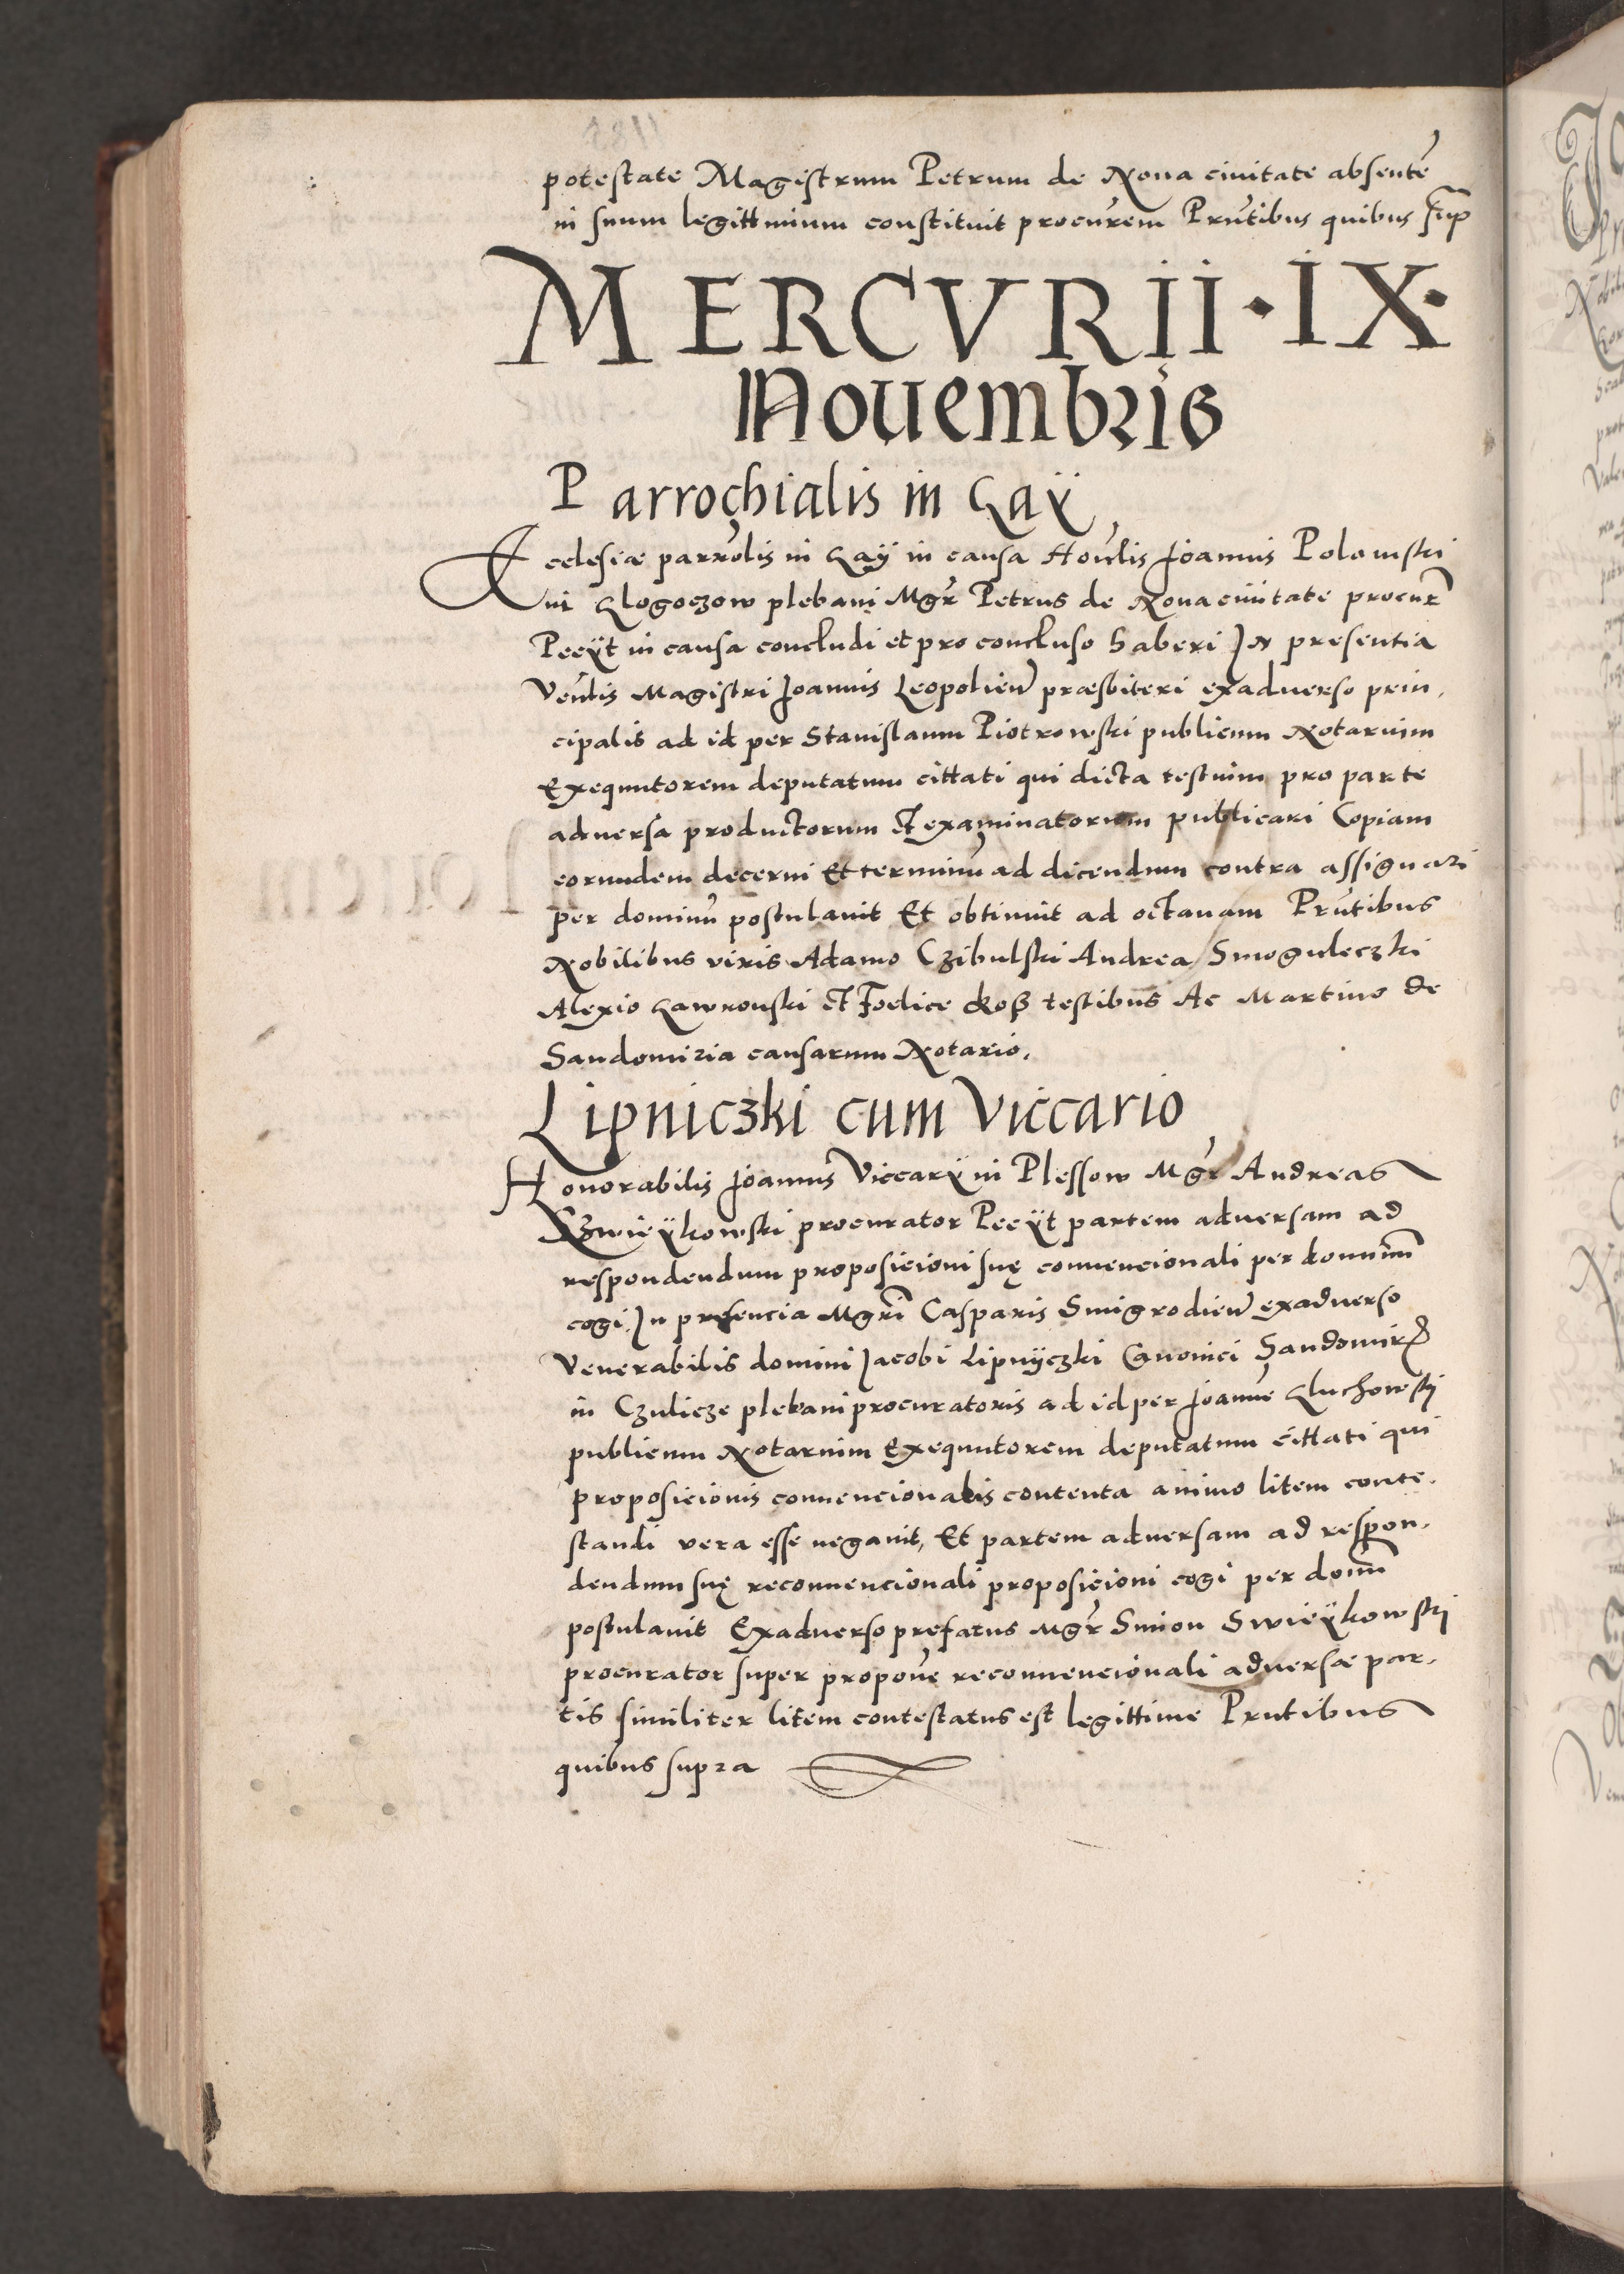 potestate Magistrum Petrum de Noua ciuitate absentē
in suum legittimum constituit procur̄em Prn̄tibus quibus sup̄
MERCVRII · IX ·
Nouembris
Parrochialis in Gaÿ
Ecclesiæ parrōlis in Gaÿ in causa Hon̄lis Joannis Polomski
in Glogoczow plebani Mgr̄ Petrus de Noua ciuitate procur̄
Peeÿt in causa concludi et pro concluso haberi In presentia
Ven̄lis Magistri Joannis Leopolien̄ præsbiteri exaduerso prin,
cipalis ad id per Stanislaum Piotrowski publicum Notarium
Exequutorem deputatum cittati qui dicta testium pro parte
aduersa productorum et examinatorum publicari Copiam
eorundem decerni Et terminū ad dicendum contra assignari
per dominū postulauit Et obtinuit ad octauam Prn̄tibus
Nobilibus viris Adamo Czibulski Andrea Smoguleczki
Alexio Gawronski et Foelice Koß testibus Ac Martino de
Sandomiria causarum Notario,
Lipniczki cum Viccario
Honorabilis Joannis Viccarÿ in Plessow Mgr̄ Andreas
Szwieÿkowski procurator Peeÿt partem aduersam ad
respondendum proposicioni suę conuencionali per domin̄m
cogi, In presencia Mgrī Casparis Smigrodien̄ exaduerso
Venerabilis domini Jacobi Lipnÿczki Canonici Sandomir̄
in Czulicze plebani procuratoris ad id per Joannē Gluchowskj
publicum Notarium Exequutorem deputatum cittati qui
proposicionis conuencionalis contenta animo litem conte,
standi vera esse negauit, Et partem aduersam ad respon,
dendum suę reconuencionali proposicioni cogi per dom̄
postulauit Exaduerso prefatus Mgr̄ Simon Swieÿkowski
procurator super propon̄e reconuencionali aduersæ par,
tis similiter litem contestatus est legittime Prntibus
quibus supra